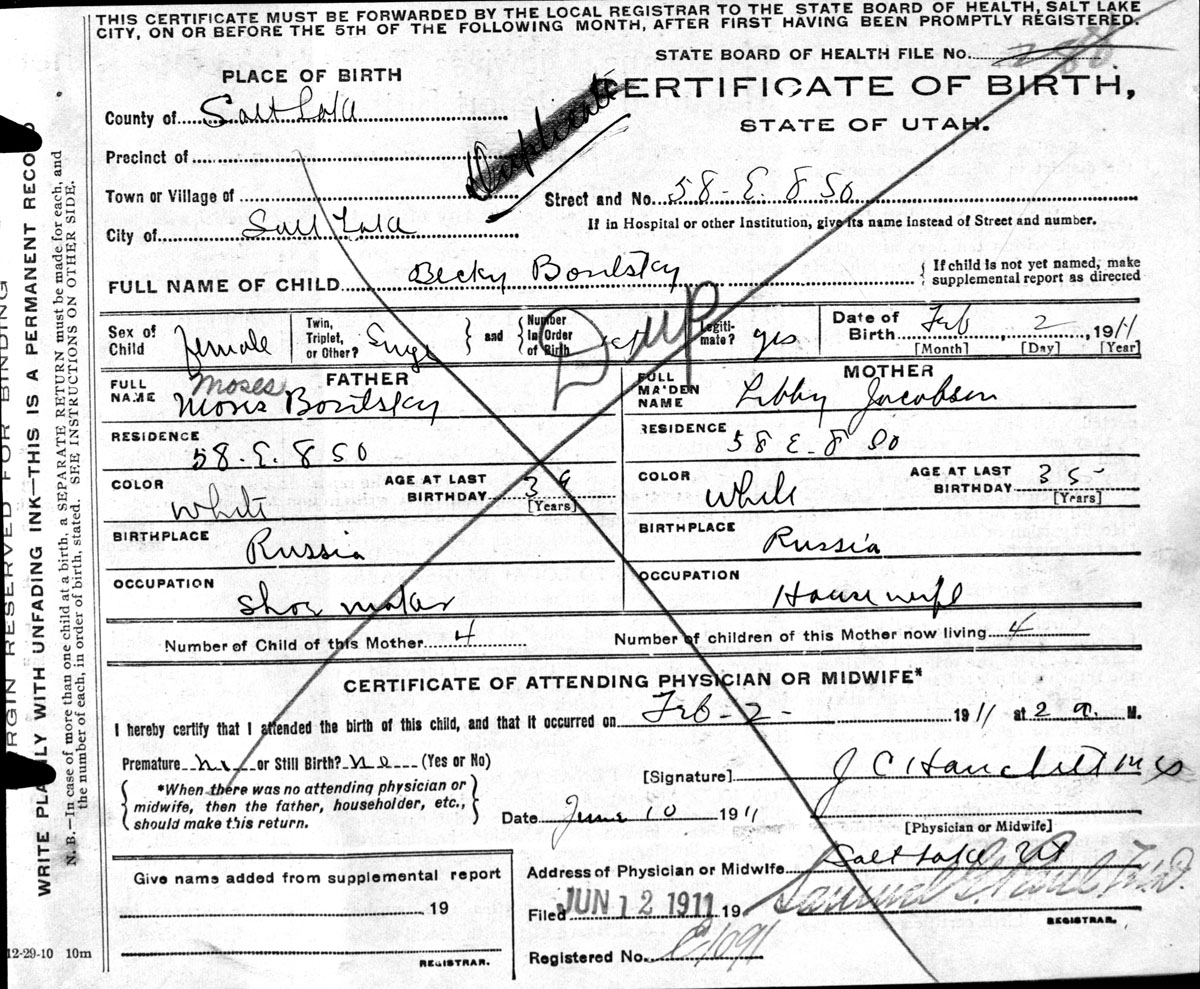 THIS CERTIFICATE MUST BE FORWARDED BY THE LOCAL REGISTRAR TO THE STATE BOARD OF HEALTH, SALT LAKE
CITY, ON OR BEFORE THE 5TH OF THE FOLLOWING MONTH, AFTER FIRST HAVING BEEN PROMPTLY REGISTERED.
STATE BOARD OF HEALTH FILE No.
PLACE OF BIRTH
CERTIFICATE OF BIRTH,
STATE OF UTAH.
Duplicate
County of Salt Lake
Precinct of
Town or Village of
Street and No. 58-E. 8 SO
If in Hospital or other Institution, give its name instead of Street and number.
City of Salt Lake
FULL NAME OF CHILD Becky
If child is not yet named, make
supplemental report as directed
Dup
Sex of Child female
Twin, Triplet, or Other?
and
Number In Order of Birth
Legitimate? yes
Date of Birth Feb 2, 1911
[Month] [Day] [Year]
FATHER
FULL NAME Moses
Moses
RESIDENCE 58-E. 8 SO
COLOR White
AGE AT LAST BIRTHDAY 39
[Years]
BIRTHPLACE Russia
OCCUPATION Shoe maker
MOTHER
FULL MAIDEN NAME Libby Jacobson
RESIDENCE 58 E- 8 SO
COLOR White
AGE AT LAST BIRTHDAY 35-
[Years]
BIRTHPLACE Russia
OCCUPATION House wife
Number of Child of this Mother 4
Number of children of this Mother now living 4
CERTIFICATE OF ATTENDING PHYSICIAN OR MIDWIFE*
I hereby certify that I attended the birth of this child, and that it occurred on Feb-2- 1911 at 2 a. M.
Premature no or Still Birth? no (Yes or No)
*When there was no attending physician or
midwife, then the father, householder, etc.,
should make this return.
[Signature] J C Hanchett
Date June 10 1911
[Physician or Midwife]
Address of Physician or Midwife Salt Lake Ut
Filed JUN 12 1911 19
REGISTRAR.
Registered No.
Give name added from supplemental report
19
REGISTRAR.
MARGIN RESERVED FOR BINDING
WRITE PLAINLY WITH UNFADING INK—THIS IS A PERMANENT RECORD
N. B.—In case of more than one child at a birth, a SEPARATE RETURN must be made for each, and
the number of each, in order of birth, stated. SEE INSTRUCTIONS ON OTHER SIDE.
12-29-10 10m